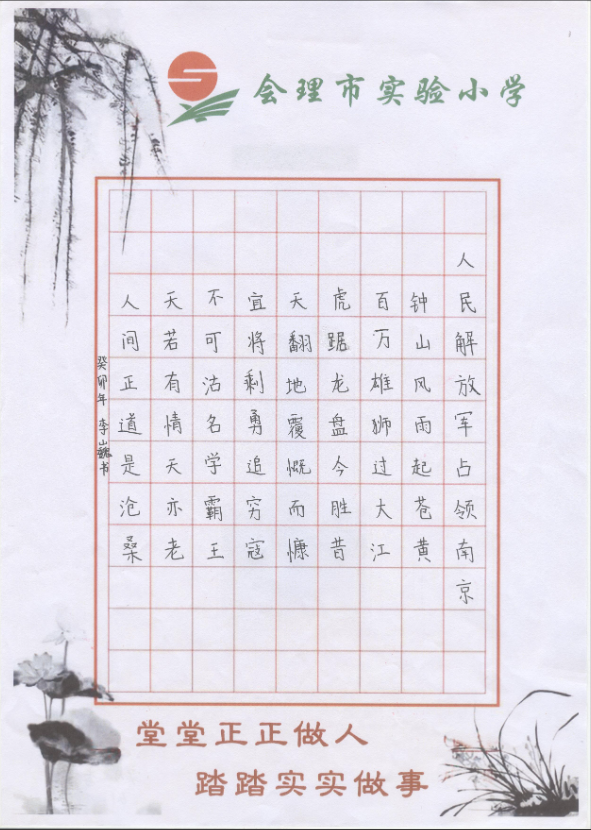 会理市实验小学
人民解放军占领南京
钟山风雨起苍黄
百万雄狮过大江
虎踞龙盘今胜昔
天翻地覆慨而慷
宜将剩勇追穷寇
不可沽名学霸王
天若有情天亦老
人间正道是沧桑
癸卯年 李巍书
堂堂正正做人
踏踏实实做事